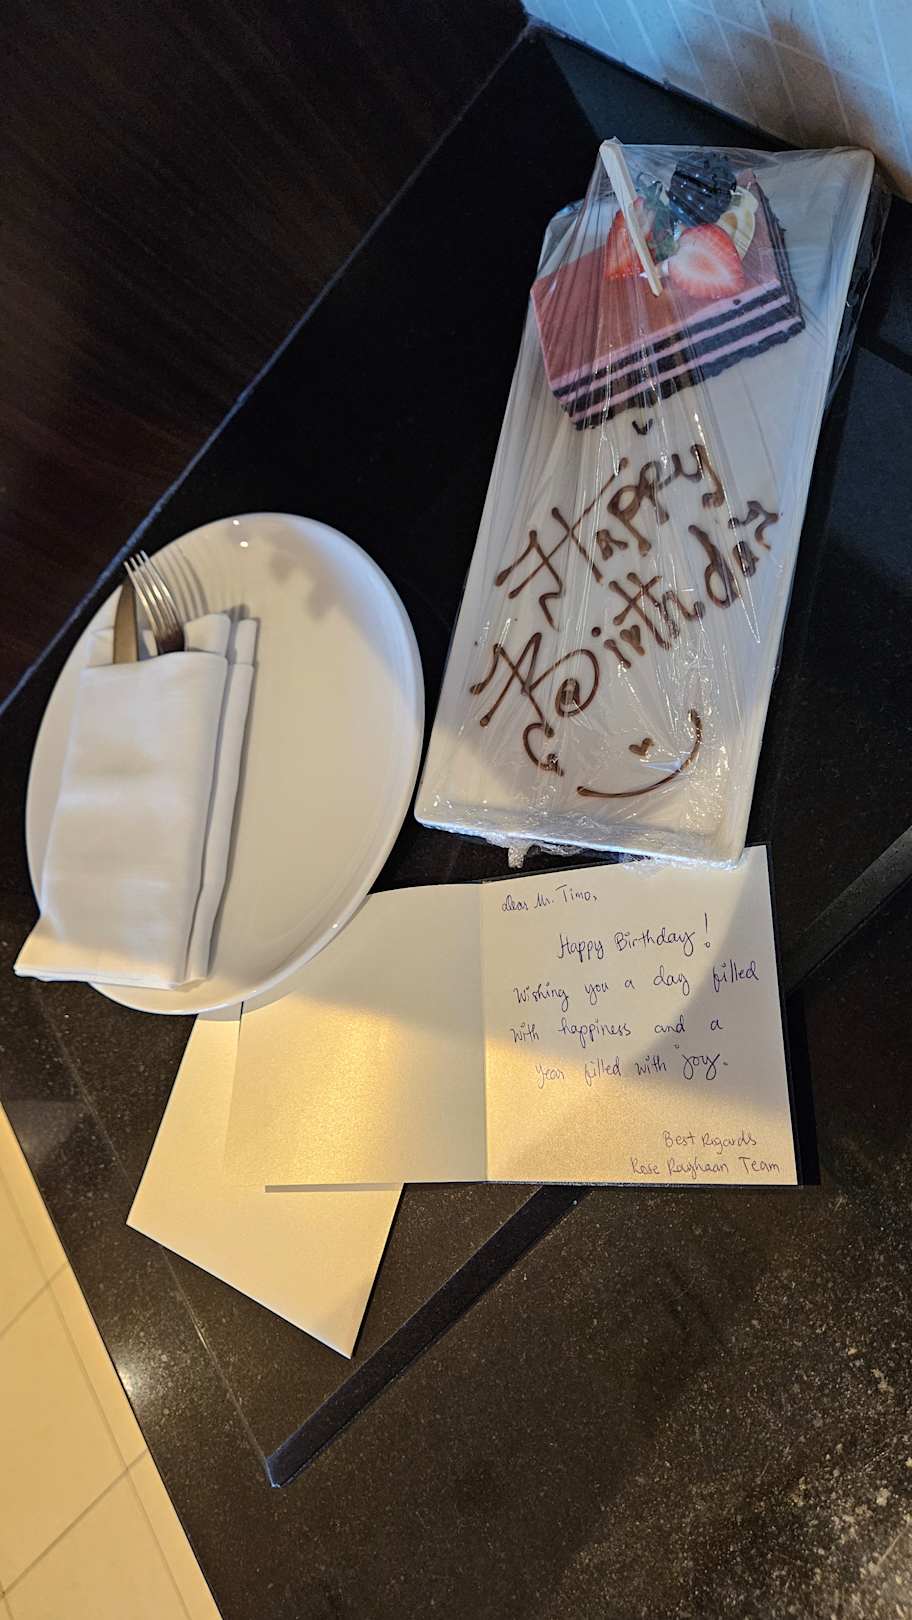 Happy
Birthday
Dear Mr. Timo,
Happy Birthday!
Wishing you a day filled
with happiness and a
year filled with joy.
Best Regards
Rose Rayhaan Team